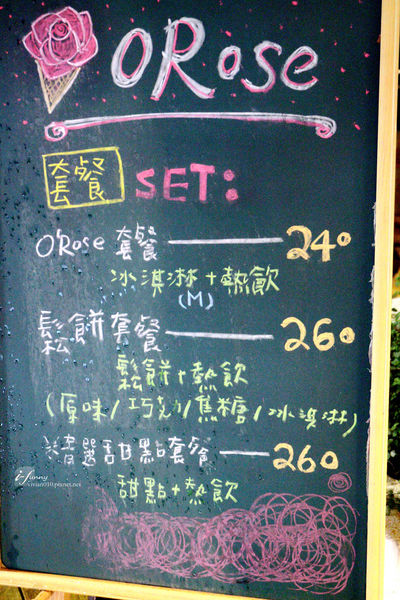 O'Rose
套餐 SET:
O'Rose 套餐 240
冰淇淋+熱飲
(M)
鬆餅套餐 260
鬆餅+熱飲
(原味/巧克力/焦糖/冰淇淋)
精選甜點套餐 260
甜點+熱飲